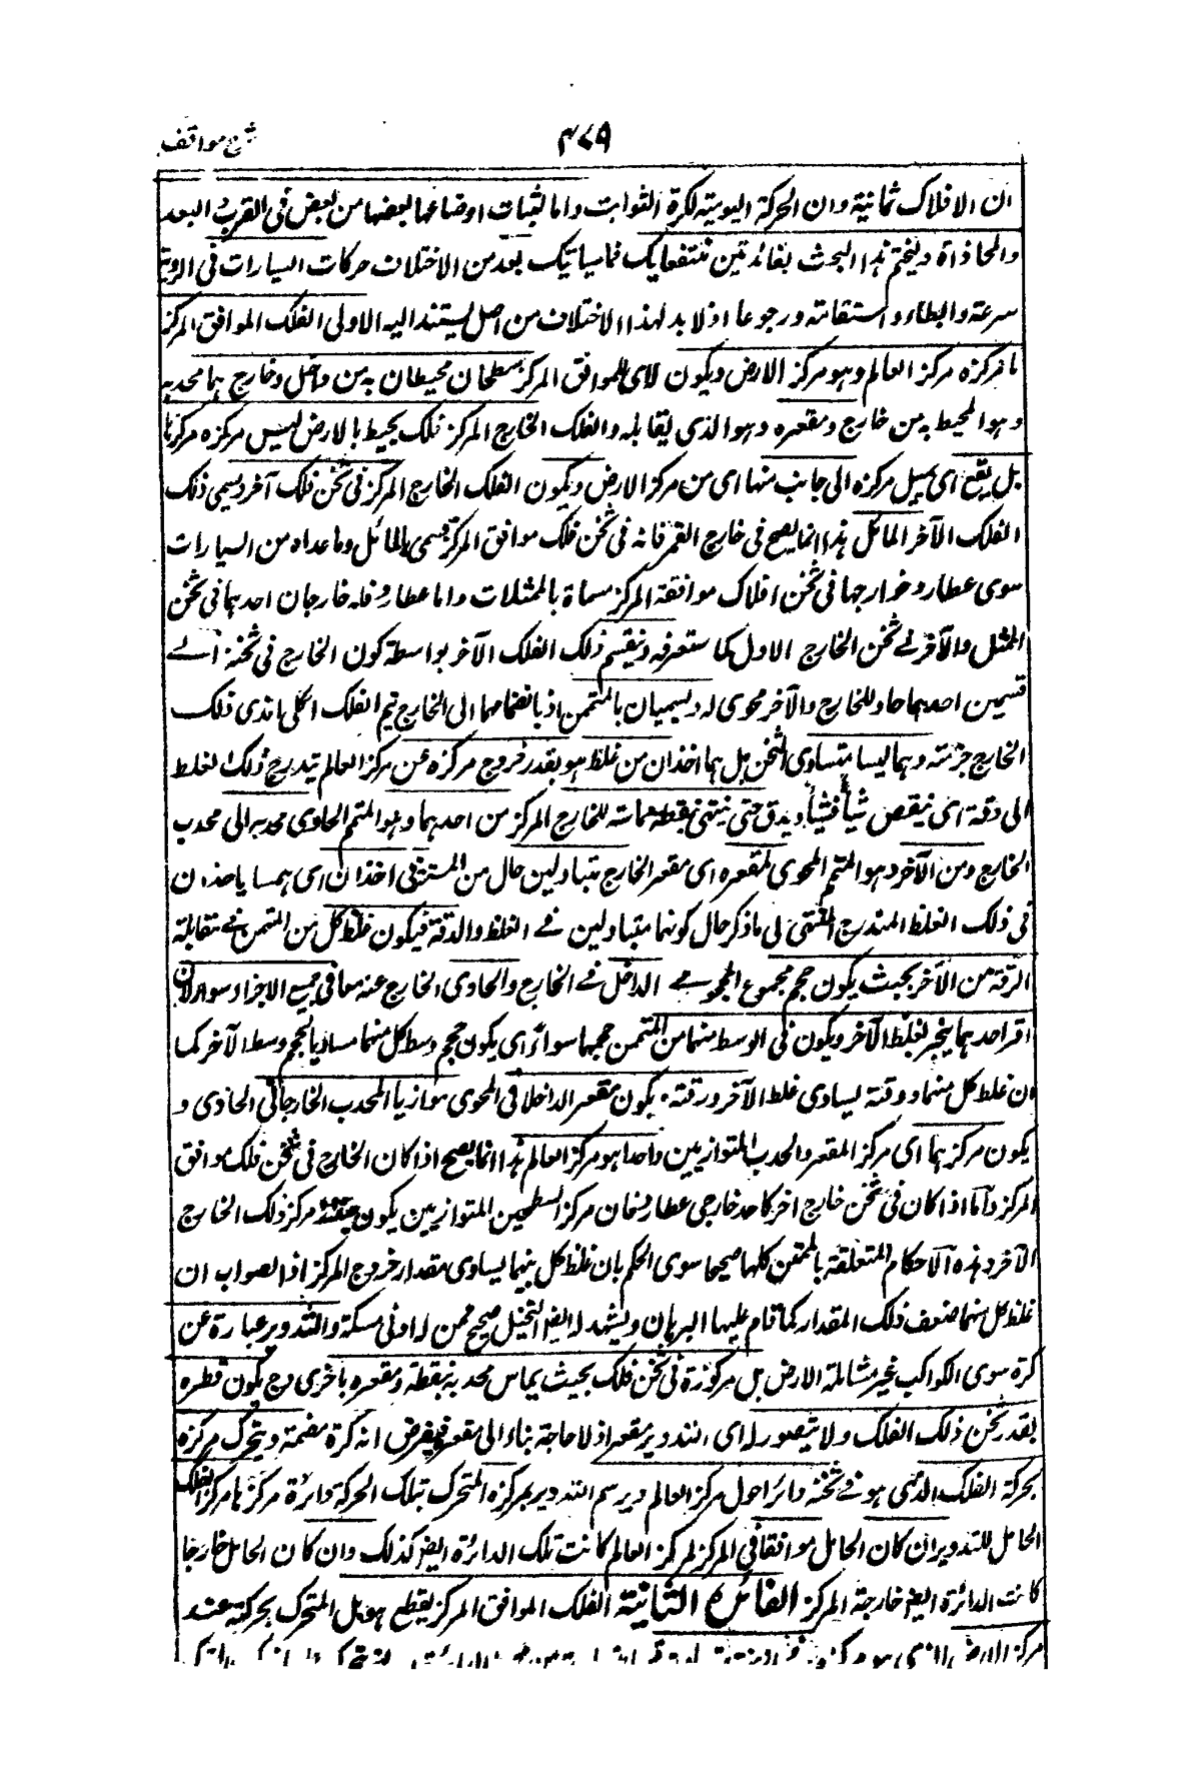 شرح مواقف
٤٧٩
ان الافلاك ثمانية وان الحركة اليومية لكرة الثوابت واما لثبات اوضاعها بعضها من بعض فى القرب والبعد
والمحاذاة ولنختم هذا البحث بفائدتين تنتفع بهما فيما يأتيك بعد من الاختلاف حركات السيارات فى الروية
سرعة والبطاء واستقامة ورجوعا اذ لا بد لهذا الاختلاف من اصل يستند اليه الاولى الفلك الموافق المركز
ما مركزه مركز العالم وهو مركز الارض ويكون لا للموافق المركز سطحان محيطان به من داخل وخارج هما محدبه
وهو المحيط به من خارج ومقعره وهو الذى يقابله والفلك الخارج المركز فلك يحيط بالارض ليس مركزه مركزها
بل يقع اى يميل مركزه الى جانب منها اى من مركز الارض ويكون الفلك الخارج المركز فى ثخن فلك آخر ويسمى ذلك
الفلك الآخر المائل هذا انما يصح فى خارج القمر فانه فى ثخن فلك موافق المركز يسمى بالمائل وما عداه من السيارات
سوى عطارد خوارجها فى ثخن افلاك موافقة المركز مسماة بالممثلات واما عطارد فله خارجان احدهما فى ثخن
الممثل والآخر فى ثخن الخارج الاول كما ستعرفه وينقسم ذلك الفلك الآخر بواسطة كون الخارج فى ثخنه الى
قسمين احدهما حاو للخارج والآخر محوى له ويسميان بالمتممين اذ بانضمامهما الى الخارج يتم الفلك الكلى الذى ذلك
الخارج جزئه وهما ليسا متساوى الثخن بل هما اخذان من غلظ هو بقدر خروج مركزه عن مركز العالم يتدرج ذلك الغلظ
الى دقة اى ينقص شيأ فشيأ ويدق حتى ينتهى بنقطة مماسة للخارج المركز من احدهما وهو المتمم الحاوى محدبه الى محدب
الخارج ومن الآخر وهو المتمم المحوى لمقعره اى مقعر الخارج متبادلين حال من المستتر فى اخذان اى هما يأخذان
فى ذلك الغلظ المندرج المنتهى الى ما ذكر حال كونهما متبادلين فى الغلظ والدقة فيكون غلظ كل من المتممين فى مقابلة
الرقة من الآخر بحيث يكون حجم مجموع المحوى الداخل فى الخارج والحاوى الخارج عنه معا فى جميع الاجزاء سواء لان
اقر احدهما ينجبر بغلظ الآخر ويكون فى الوسط منهما من المتممين حجمهما سواء اى يكون حجم وسط كل منهما مساويا لحجم وسط الآخر كما
ان غلظ كل منهما ورقته يساوى غلظ الآخر ورقته ويكون مقعر الداخل فى المحوى موازيا المحدب الخارج فى الحاوى و
يكون مركزهما اى مركز المقعر والمحدب المتوازيين واحدا هو مركز العالم هذا انما يصح اذا كان الخارج فى ثخن فلك موافق
المركز واما اذا كان فى ثخن خارج اخر كاحد خارجى عطارد فان مركز السطحين المتوازيين يكون مركز ذلك الخارج
الآخر وهذه الاحكام المتعلقة بالمتممين كلها صحيحا سوى الحكم بان غلظ كل بينهما يساوى مقدار خروج المركز اذ الصواب ان
غلظ كل منهما ضعف ذلك المقدار كما قام عليها البرهان ويشهد له ايضا التخيل صحيح ممن له ادنى مسكة والتدوير عبارة عن
كرة سوى الكواكب غير شاملة الارض بل مركوزة فى ثخن فلك بحيث يماس محدبه بنقطة ومقعره باخرى وح يكون قطره
بقدر ثخن ذلك الفلك ولا يتصور له اى للتدوير مقعر اذ لا حاجة بناء الى مقعره فيفرض انه كرة مصمتة ويتحرك مركزه
بحركة الفلك الذى هو فى ثخنه دائرا حول مركز العالم ويرسم التدوير بمركزه المتحرك بتلك الحركة دائرة مركزها مركز الفلك
الحامل للتدوير ان كان الحامل موافقا فى المركز لمركز العالم كانت تلك الدائرة ايضا كذلك وان كان الحامل خارجا
كانت الدائرة ايضا خارجة المركز الفائدة الثانية الفلك الموافق المركز يقطع هو بل المتحرك بحركته عند
مركز الارض الذى هو مركزه